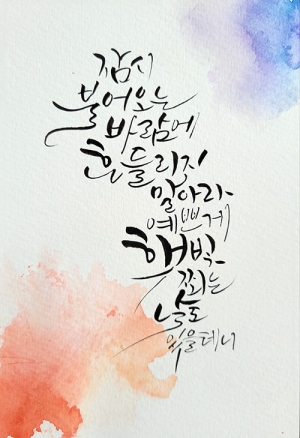 잠시
불어오는
바람에
흔들리지
말아라
예쁘게
햇빛
쬐는
날도
있을테니